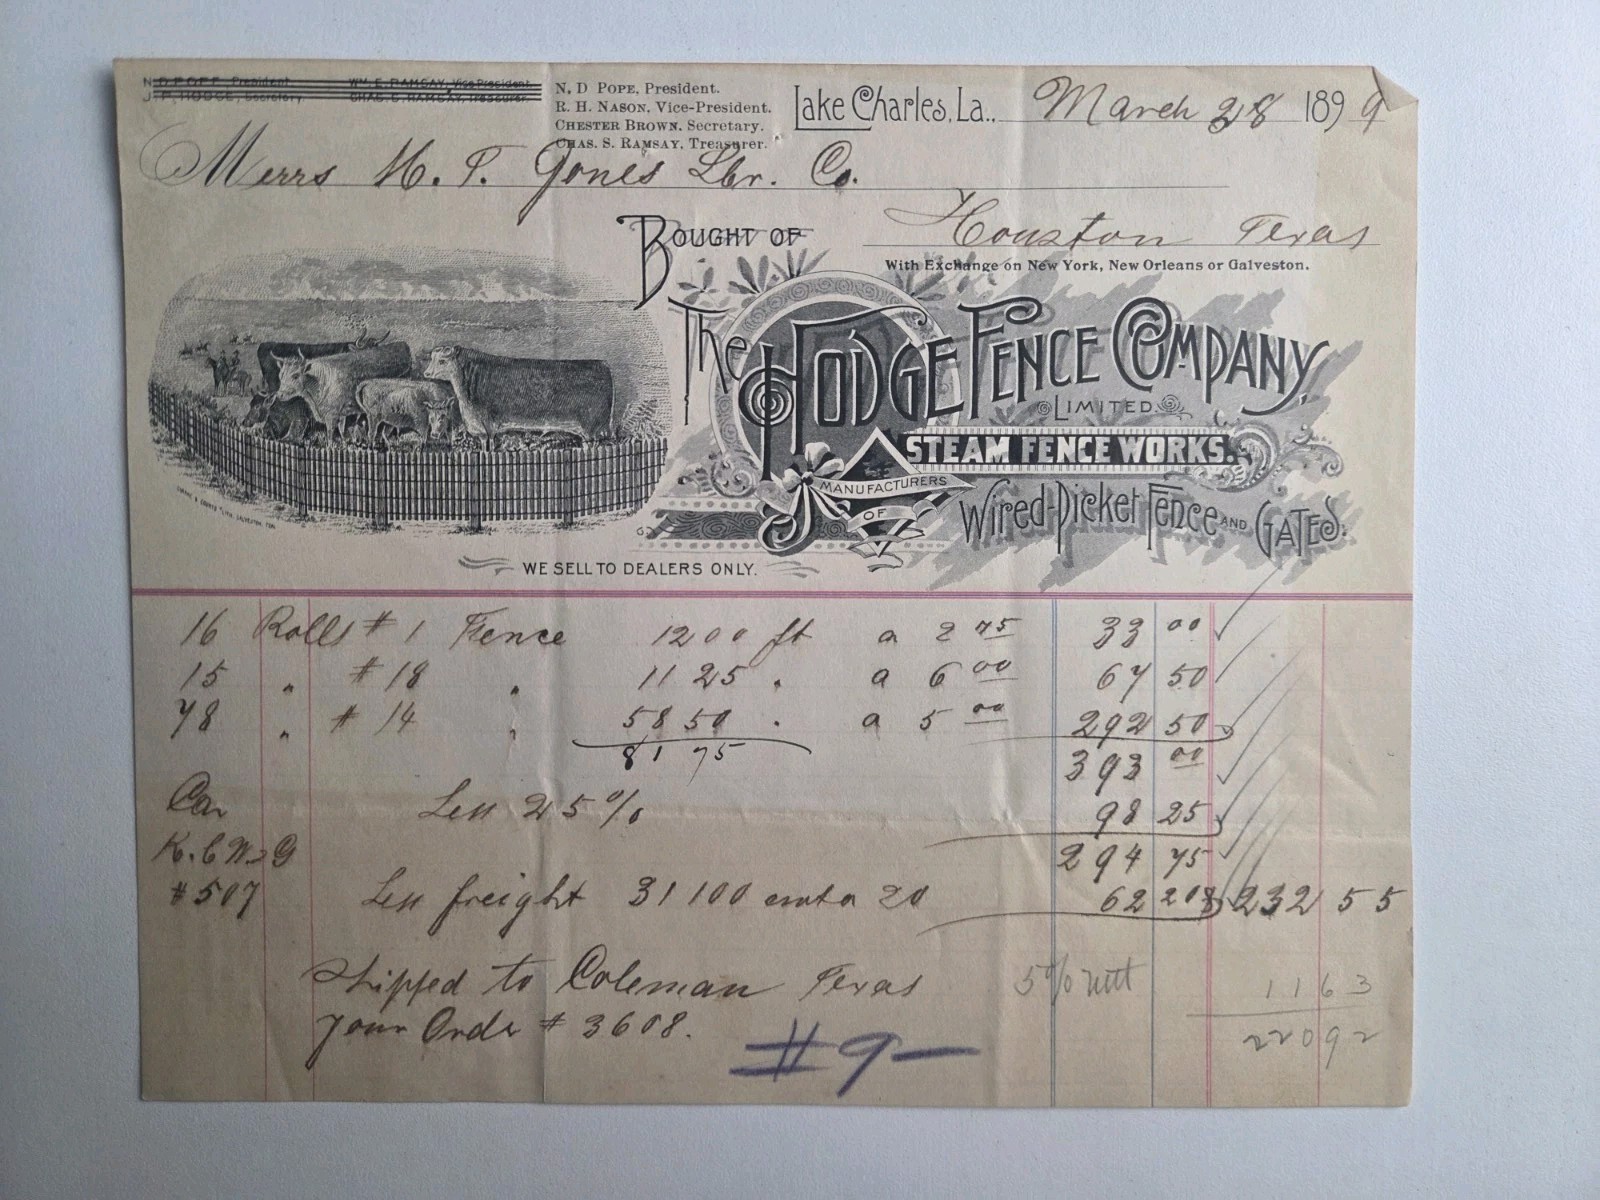 N. D. POPE, President. WM. E. RAMSAY, Vice President.
J. P. HODGE, Secretary. CHAS. S. RAMSAY, Treasurer.
N. D POPE, President.
R. H. NASON, Vice-President.
CHESTER BROWN. Secretary.
CHAS. S. RAMSAY, Treasurer.
Lake Charles, La., March 28 1899
Merrs M. T. Jones Lbr. Co.
Houston Texas
BOUGHT OF
With Exchange on New York, New Orleans or Galveston.
THE HODGE FENCE COMPANY,
LIMITED.
STEAM FENCE WORKS.
MANUFACTURERS
OF
Wired-Picket Fence AND GATES.
WE SELL TO DEALERS ONLY.
16 Rolls #1 Fence 1200 ft a 2 75 33 00
15 " #18 " 1125 " a 6 00 67 50
78 " #14 " 5850 " a 5 00 292 50
8175 393 00
Car Less 25% 98 25
K.C.W.&G 294 75
#507 Less freight 31100 a 20 62 20 232 55
Shipped to Coleman Texas 5% 11 63
your Order # 3608. 220 92
#9-